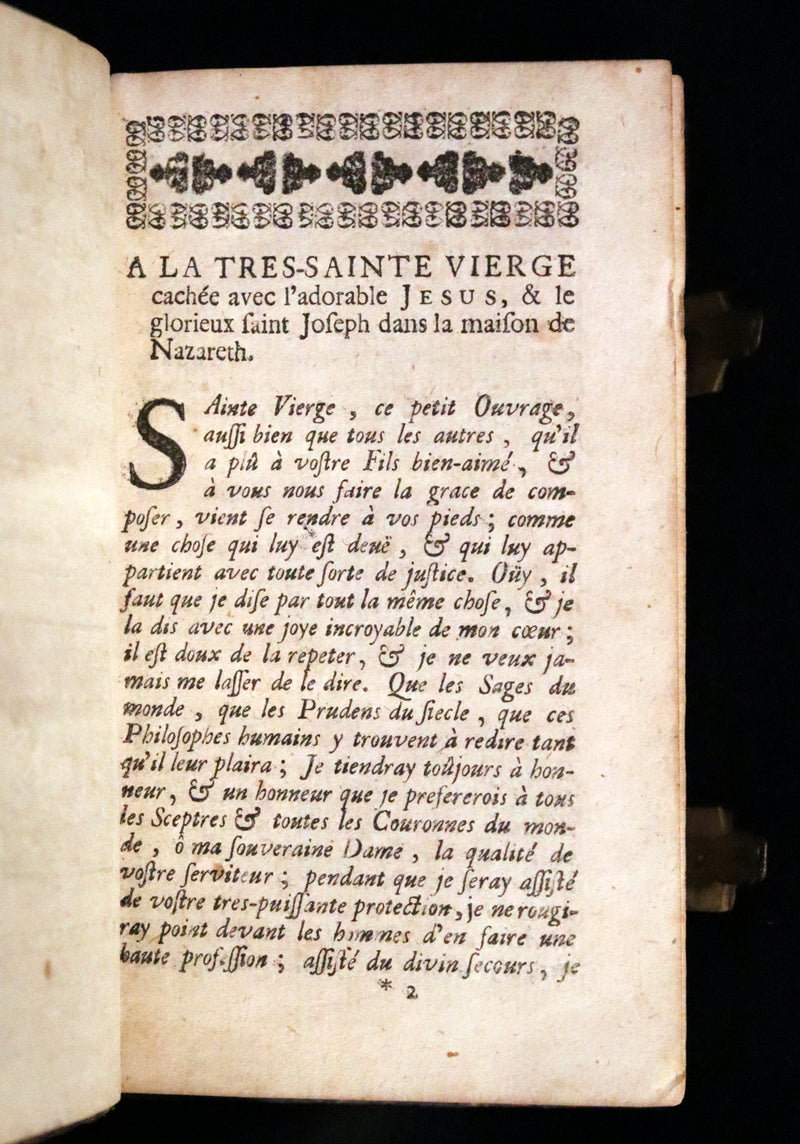 A LA TRES-SAINTE VIERGE
cachée avec l'adorable JESUS, & le
glorieux ſaint Joſeph dans la maiſon de
Nazareth.
SAinte Vierge , ce petit Ouvrage,
auſſi bien que tous les autres , qu'il
a plû à voſtre Fils bien-aimé, &
à vous nous faire la grace de com-
poſer, vient ſe rendre à vos pieds ; comme
une choſe qui luy eſt deuë , & qui luy ap-
partient avec toute ſorte de juſtice. Oüy , il
faut que je diſe par tout la même choſe, & je
la dis avec une joye incroyable de mon cœur ;
il eſt doux de la repeter, & je ne veux ja-
mais me laſſer de le dire. Que les Sages du
monde , que les Prudens du ſiecle , que ces
Philoſophes humains y trouvent à redire tant
qu'il leur plaira ; Je tiendray toûjours à hon-
neur, & un honneur que je prefererois à tous
les Sceptres & toutes les Couronnes du mon-
de , ô ma ſouveraine Dame , la qualité de
voſtre ſerviteur ; pendant que je ſeray aſſiſté
de voſtre tres-puiſſante protection, je ne rougi-
ray point devant les hommes d'en faire une
haute profeſſion ; aſſiſté du divin ſecours, je
* 2